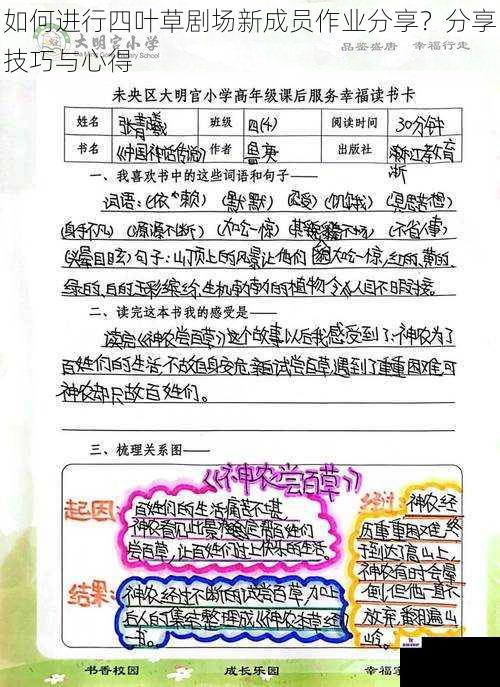 如何进行四叶草剧场新成员作业分享？分享
技巧与心得
大明宫小学
品鉴盛唐 幸福行走
未央区大明宫小学高年级课后服务幸福读书卡
姓名 张菁曦 班级 四(4) 阅读时间 30分钟
书名 《中国神话传说》 作者 鲁英 出版社 浙江教育
浙
一、我喜欢书中的这些词语和句子——
词语:(依赖) (默默) (忍受) (饥饿)
(身手不凡) (源源不断) (大吃一惊) (不省人事)
(头晕目眩) 句子:山顶上的风景让他们大吃一惊,红的、黄的、
绿的、白的、五彩缤纷、生机勃勃的植物令人目不暇接。
二、读完这本书我的感受是——
读完《神农尝百草》这个故事以后我感受到了:神农为了
百姓们的生活,不故自身安危,亲自试尝百草,遇到了重重困难,可
神农却只故百姓们。
三、梳理关系图——
《神农尝百草》
起因:
百姓们的生活痛苦不堪,
神农看见此景,决定帮百姓们
尝百草,让百姓们过上快乐的生活。
经过:
神农经
历重重困难,终
于到达了高山上,
神农有时会晕
倒,但他一直不
放弃,翻遍山
岭。
结果:
神农经过不断的试尝百草,加上
后人的集结整理成《神农本草经》
一书。
书香校园
成长乐园
幸福家